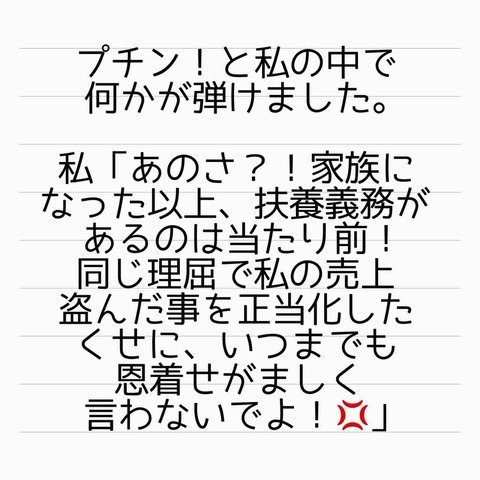 プチン！と私の中で
何かが弾けました。
私「あのさ？！家族に
なった以上、扶養義務が
あるのは当たり前！
同じ理屈で私の売上
盗んだ事を正当化した
くせに、いつまでも
恩着せがましく
言わないでよ！💢」